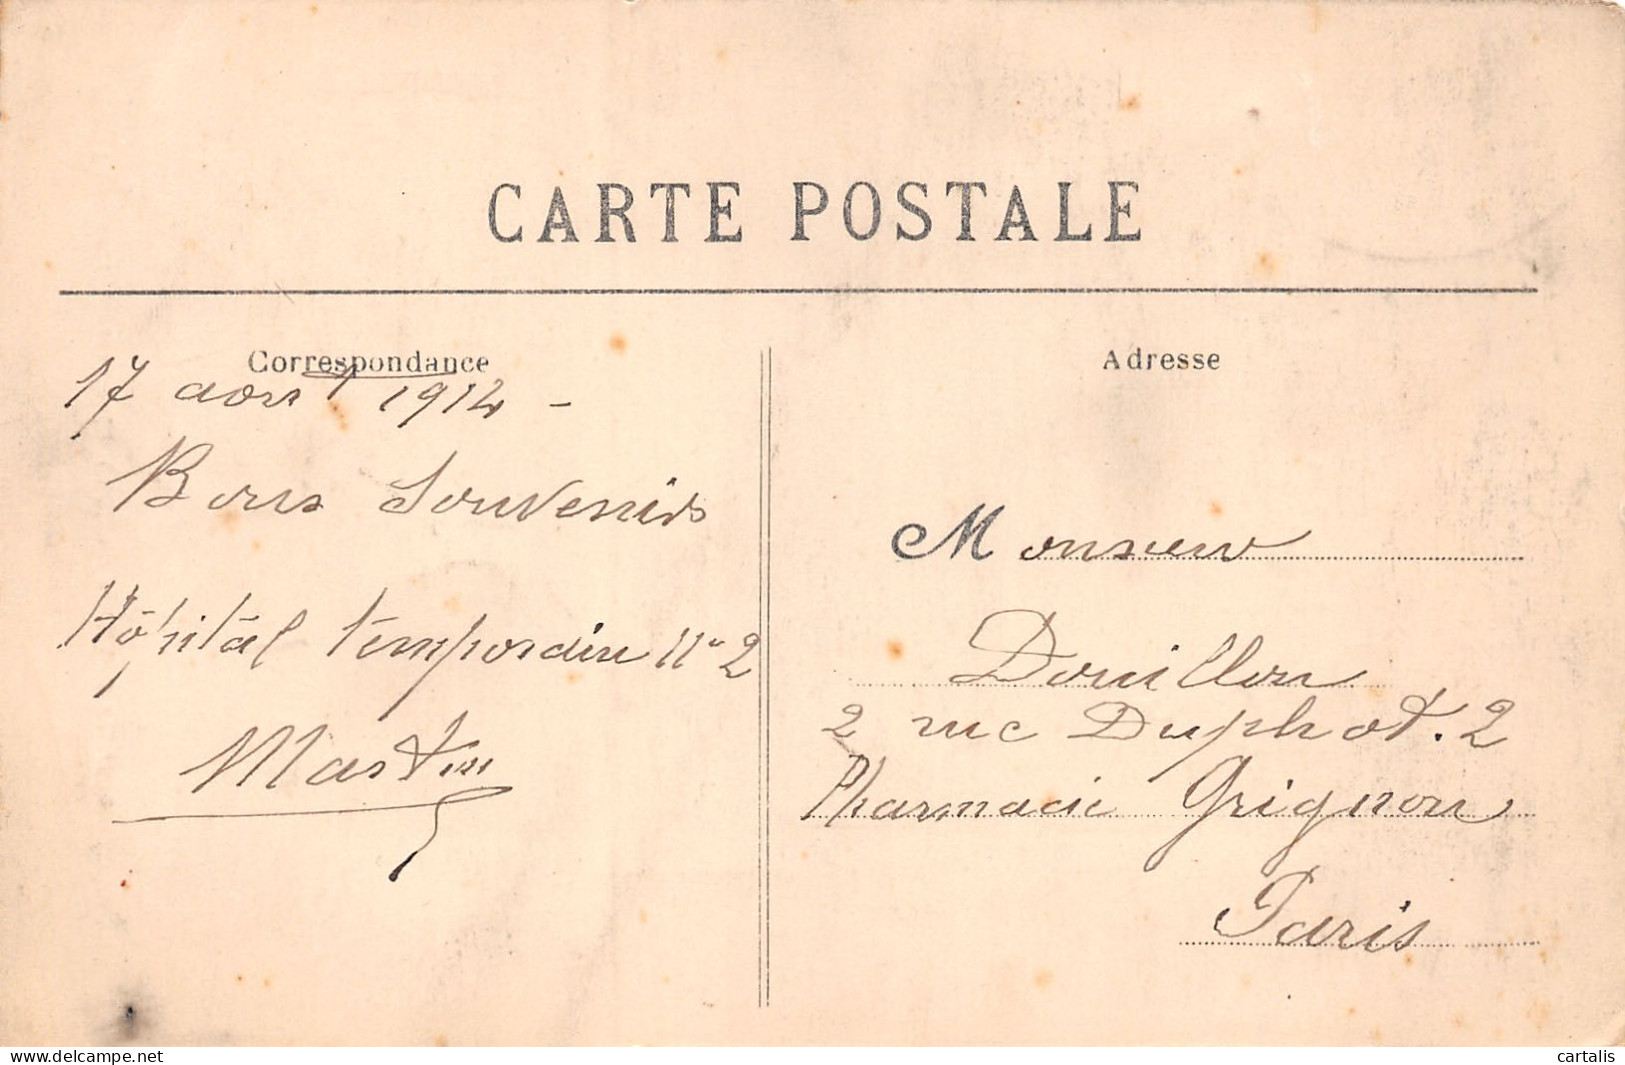 CARTE POSTALE
Correspondance
17 aout 1914 -
Bons Souvenirs
Hôpital temporaire No 2
Martin
Adresse
Monsieur
Douillon
2 rue Duphot. 2
Pharmacie Grignon
Paris
www.delcampe.net
cartalis